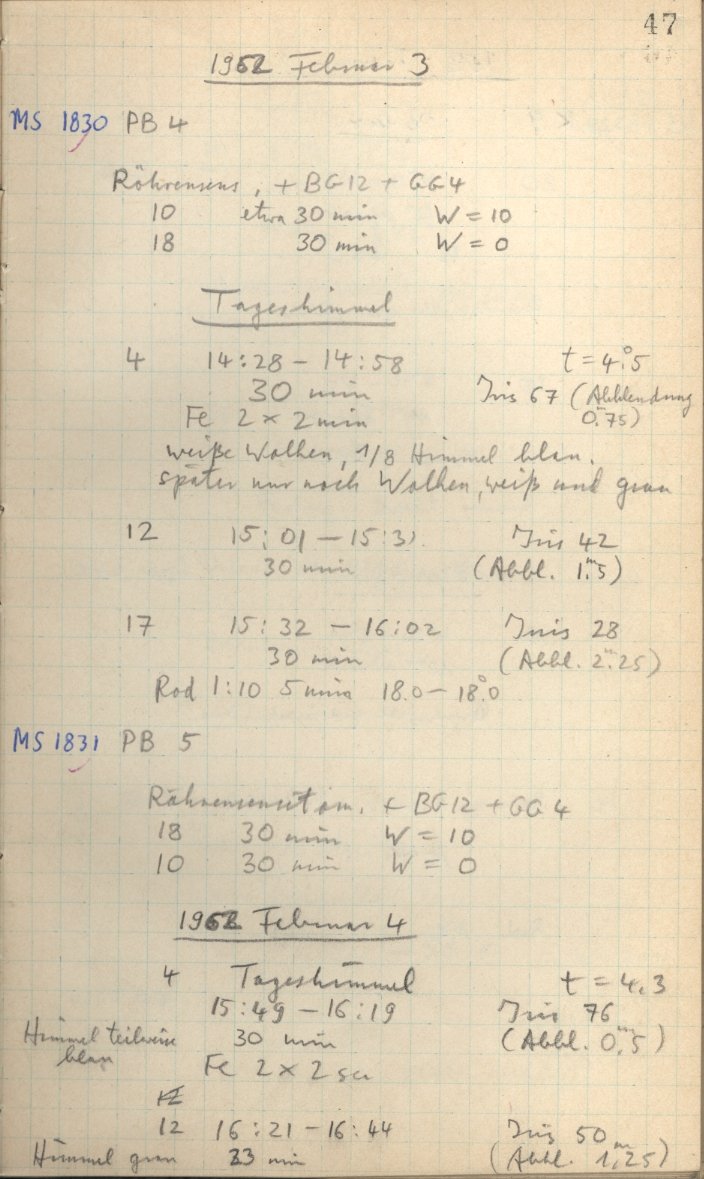 47
1962 Februar 3
MS 1830 PB 4
Röhrensens, + BG12 + GG4
10 etwa 30 min W = 10
18 30 min W = 0
Tageshimmel
4 14:28 – 14:58 t = 4.°5
30 min Iris 67 (Abblendung
Fe 2 × 2 min 0.ᵐ75)
weiße Wolken, 1/8 Himmel blau.
später nur noch Wolken, weiß und grau
12 15:01 – 15:31 Iris 42
30 min (Abbl. 1.ᵐ5)
17 15:32 – 16:02 Iris 28
30 min (Abbl. 2.ᵐ25)
Rod 1:10 5 min 18.0 – 18.°0
MS 1831 PB 5
Röhrensensitom. + BG12 + GG4
18 30 min W = 10
10 30 min W = 0
1962 Februar 4
4 Tageshimmel t = 4.3
15:49 – 16:19 Iris 76
Himmel teilweise 30 min (Abbl. 0.ᵐ5)
blau Fe 2 × 2 sec
12
12 16:21 – 16:44 Iris 50
Himmel grau 23 min (Abbl. 1.ᵐ25)